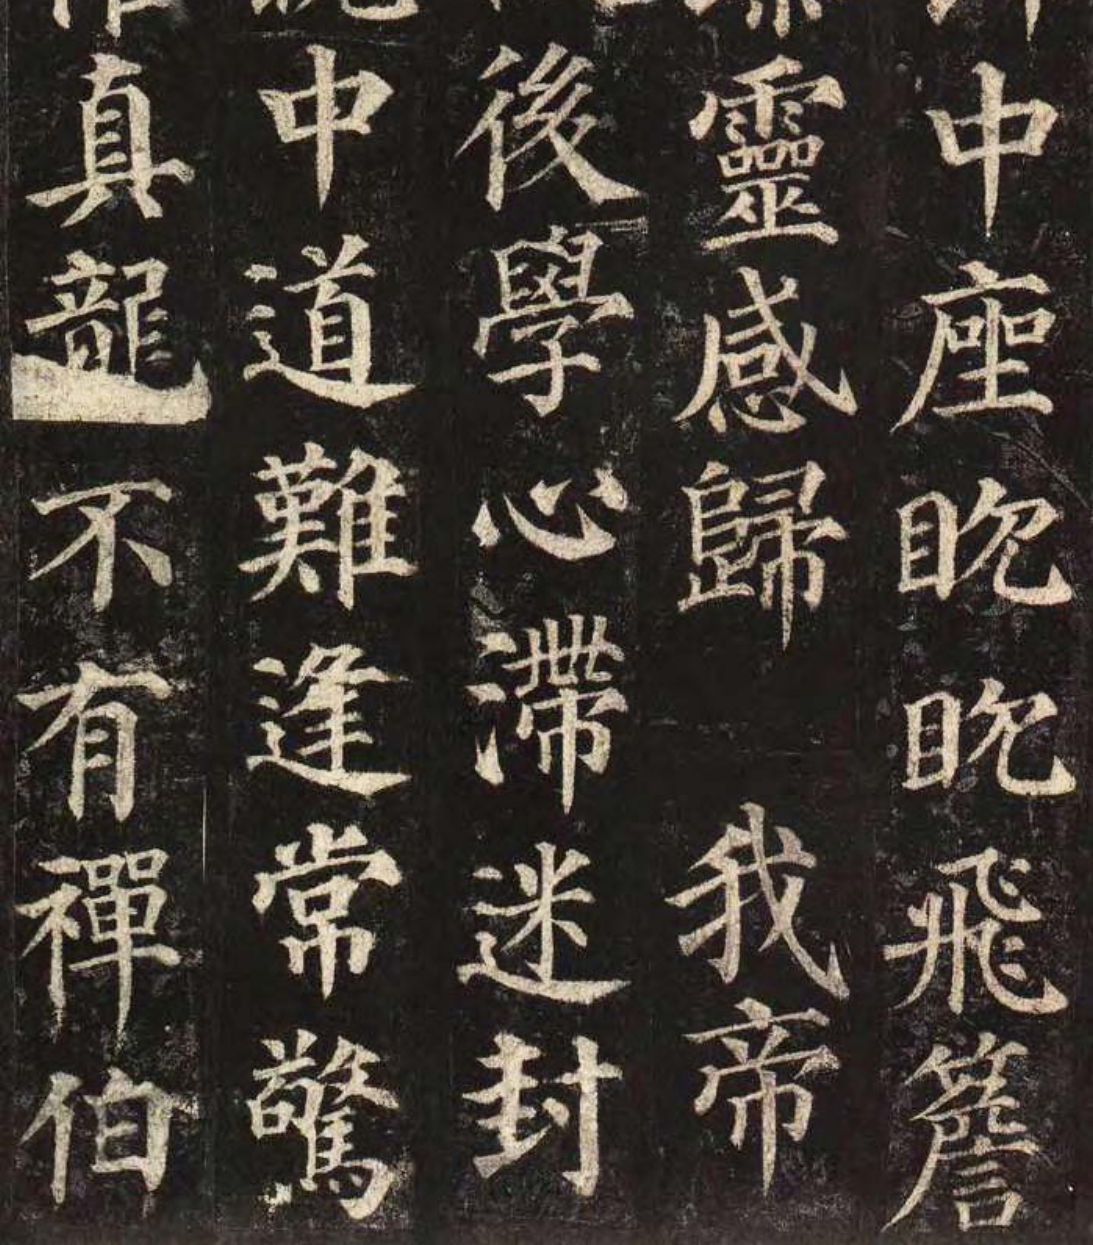 中座眈眈飛簷
靈感歸我帝
後學心滯迷封
中道難逢常驚
真龍不有禪伯